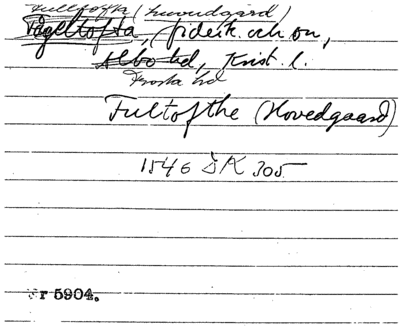 Fulltofta (huvudgård)
Vägeltofta, fideik. och sn,
Albo hd, Krist. l.
Frosta hd
Fultofthe (Hovedgaard)
1546 DK 305
r 5904.